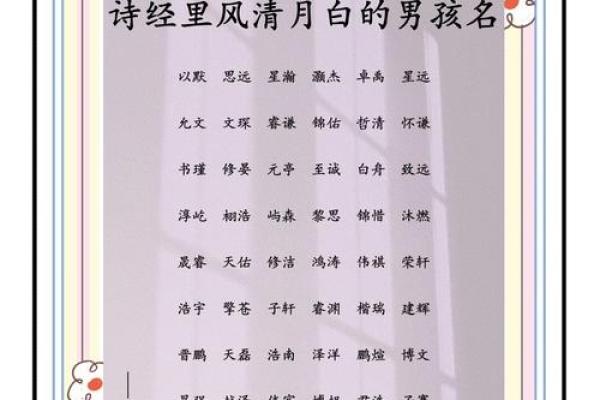 诗经里风清月白的男孩名
以默 思远 星瀚 灏杰 卓禹 星远
允文 文琛 睿谦 锦佑 哲清 怀谦
书瑾 修晏 元亭 至诚 白舟 致远
淳屹 栩浩 屿森 黎思 锦惜 沐燃
晟睿 天佑 修洁 鸿涛 伟祺 荣轩
浩宇 擎苍 子轩 睿渊 楷瑞 建辉
晋鹏 天磊 浩南 泽洋 鹏煊 博文